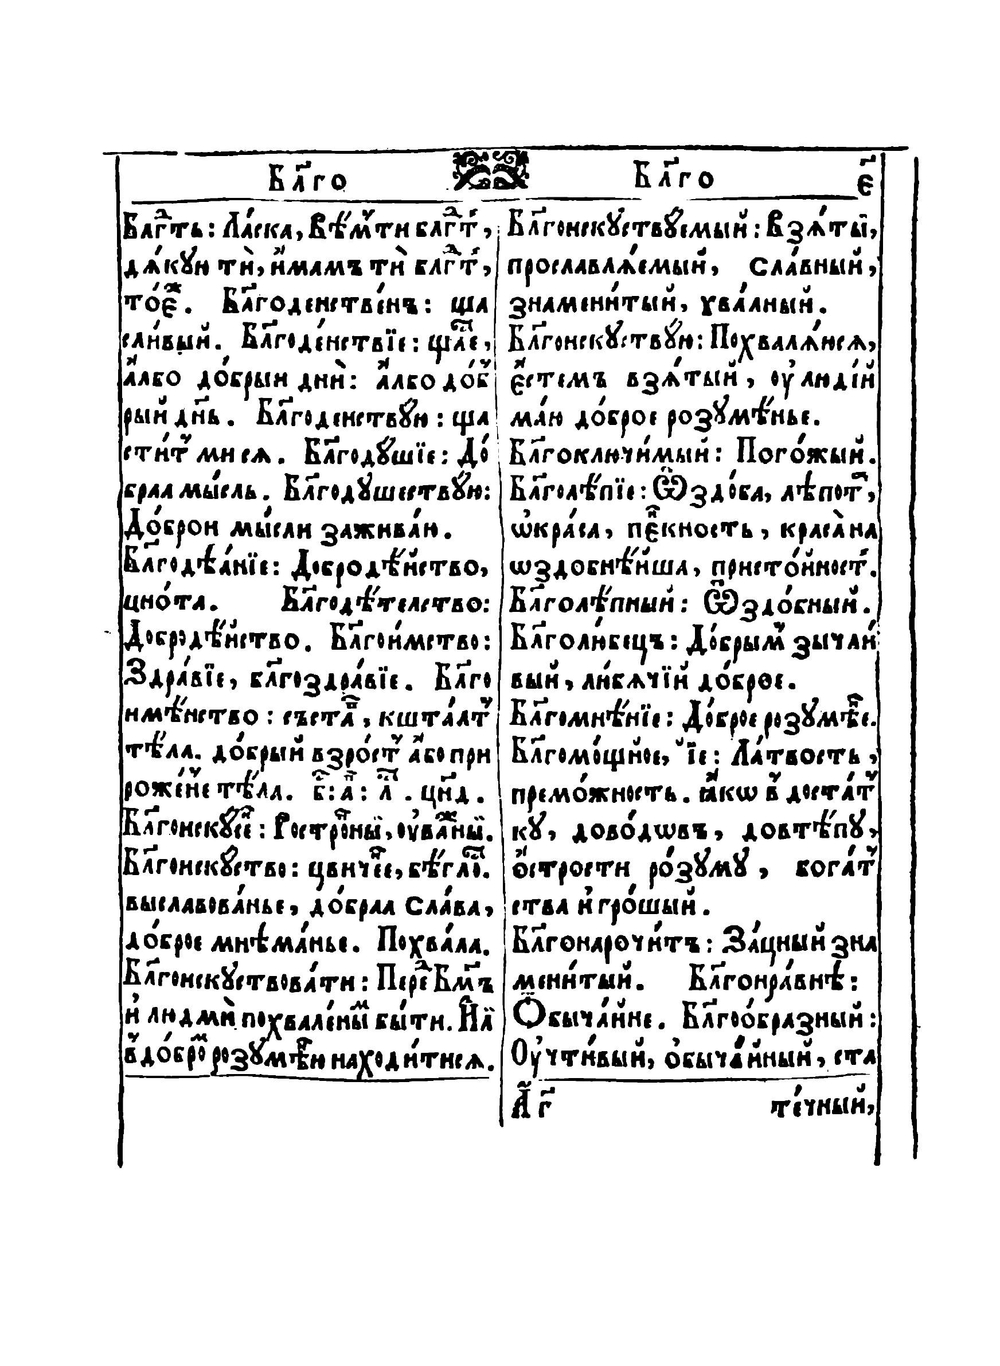 Бл҃го
Бл҃го
є҃
Блгⷣть: Ла́ска, Въ́мѣ́сти блгⷣт,
дѧ́кую тѝ, и҆́мамъ тѝ блгⷣт,
то́еⷤ. Бл҃годенстве́нъ: ща
сли́вый. Бл҃годе́нствїе: щⷭ҇ае,
а҆́лбо до́брыи днѝ: а҆́лбо до́б
рый дн҃ь. Бл҃годенствꙋю: ща
сти́т ми сѧ. Бл҃годꙋ́шїе: До́
браѧ мы́сль. Бл҃годꙋшествꙋ́ю:
До́брои мы́сли зажива́ю.
Бл҃годѣ́ѧнїе: Добродѣ́йство,
цно́та. Бл҃годѣ́телство:
Добродѣ́йство. Бл҃гои́мство:
Здра́вїе, бл҃гоздра́вїе. Бл҃го
имѣ́нство: съста́в, кшта́лт
тѣ́ла. до́брый взро́ст а҆́бо при
роже́нє тѣ́ла. в҃: а҃: л҃. цн҃д.
Бл҃гоискꙋ́сⷩ: Ростро́пный, ꙋва́жный.
Бл҃гоискꙋ́ство: цвиче́нⷩе, бѣ́глоⷭ.
выславова́нье, до́браѧ сла́ва,
до́брое мнѣма́нье. Похва́ла.
Бл҃гоискꙋствова́ти: Пере́ⷣ Бг҃мъ
и҆ людмѝ похвале́ныⷨ бы́ти. И҆лѝ
в до́броⷨ розꙋмѣ́нⷩи находи́тисѧ.
Бл҃гоискꙋ́ствꙋемый: Взѧ́тый,
прославлѧ́емый, сла́вный,
знамени́тый, хва́лный.
Бл҃гоискꙋствꙋ́ю: Похвалѧ́юсѧ,
є҆́стемъ взѧ́тый, ѹ҆ люді́й
ма́ю до́брое розꙋмѣ́нье.
Бл҃гоключи́мый: Пого́жый.
Бл҃голѣ́пїе: Ѽздо́ба, лѣ́пот,
ѡ҆кра́са, пѣ́кность, краса̀ на
ѡздобнѣ́йша, присто́йност.
Бл҃голѣ́пный: Ѽздо́бный.
Бл҃голю́бецъ: До́брым зычли́
вый, любѧ́чїй до́брое.
Бл҃гомнѣ́нїе: До́брое розꙋмѣ́нⷩе.
Бл҃гомо́щное, їе: Ла́твость,
премо́жность. ꙗ҆́кѡ в доста́т
кꙋ, дово́дѡвъ, довтѣ́пꙋ,
о҆́стрости ро́зꙋмꙋ, бога́т
ства и҆ гро́шый.
Бл҃гонарочи́тъ: За́цный зна
мени́тый. Бл҃гонра́внѣ:
Ѻ҆быча́йне. Бл҃гоо́бразный:
Оу҆чти́вый, ѻ҆быча́йный, ста
А҃ г҃
те́чный,